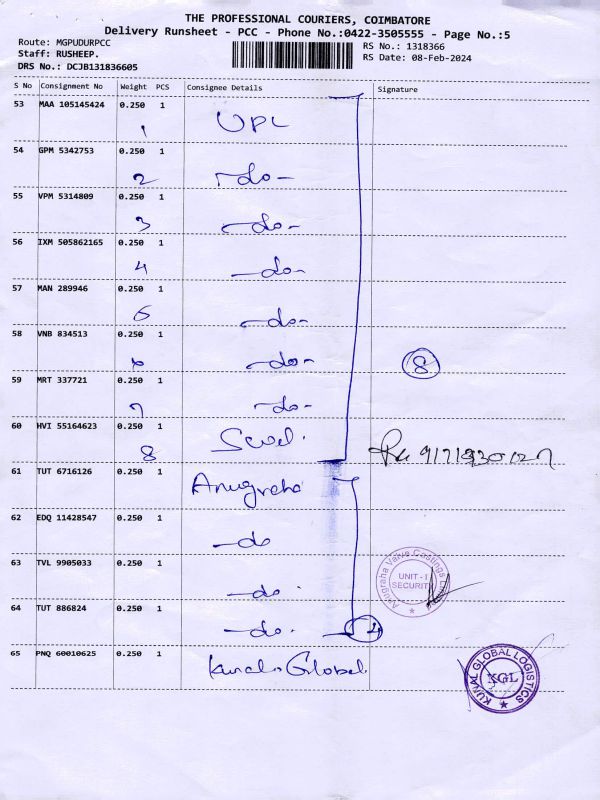 THE PROFESSIONAL COURIERS, COIMBATORE
Delivery Runsheet - PCC - Phone No.:0422-3505555 - Page No.:5
Route: MGPUDURPCC
Staff: RUSHEEP.
DRS No.: DCJB131836605
RS No.: 1318366
RS Date: 08-Feb-2024
S No Consignment No Weight PCS Consignee Details Signature
53 MAA 105145424 0.250 1
1 UPL
54 GPM 5342753 0.250 1
2 -do-
55 VPM 5314809 0.250 1
3 -do-
56 IXM 505862165 0.250 1
4 -do-
57 MAN 289946 0.250 1
5 -do-
58 VNB 834513 0.250 1
6 -do- 8
59 MRT 337721 0.250 1
7 -do-
60 HVI 55164623 0.250 1
8
61 TUT 6716126 0.250 1
Anugraha
62 EDQ 11428547 0.250 1
-do
63 TVL 9905033 0.250 1
-do.
Anugraha Valve Castings
UNIT - I
SECURITY
64 TUT 886824 0.250 1
-do. 4
65 PNQ 60010625 0.250 1
Kunal Global
KUNAL GLOBAL LOGISTICS
KGL